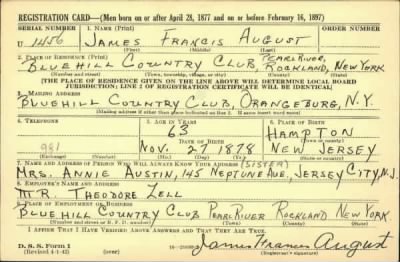 REGISTRATION CARD—(Men born on or after April 28, 1877 and on or before February 16, 1897)
SERIAL NUMBER 1. NAME (Print) ORDER NUMBER
U 1456 JAMES FRANCIS AUGUST
(First) (Middle) (Last)
2. PLACE OF RESIDENCE (Print)
BLUEHILL COUNTRY CLUB, PEARL RIVER, ROCKLAND, NEW YORK
(Number and street) (Town, township, village, or city) (County) (State)
[THE PLACE OF RESIDENCE GIVEN ON THE LINE ABOVE WILL DETERMINE LOCAL BOARD
JURISDICTION; LINE 2 OF REGISTRATION CERTIFICATE WILL BE IDENTICAL]
3. MAILING ADDRESS
BLUEHILL COUNTRY CLUB, ORANGEBURG, N.Y.
[Mailing address if other than place indicated on line 2. If same insert word same]
4. TELEPHONE 5. AGE IN YEARS 6. PLACE OF BIRTH
63 HAMPTON
DATE OF BIRTH (Town or county)
981 NOV. 27 1878 NEW JERSEY
(Exchange) (Number) (Mo.) (Day) (Yr.) (State or country)
7. NAME AND ADDRESS OF PERSON WHO WILL ALWAYS KNOW YOUR ADDRESS (SISTER)
MRS. ANNIE AUSTIN, 145 NEPTUNE AVE, JERSEY CITY, N.J.
8. EMPLOYER'S NAME AND ADDRESS
MR. THEODORE ZELL
9. PLACE OF EMPLOYMENT OR BUSINESS
BLUE HILL COUNTRY CLUB PEARL RIVER ROCKLAND NEW YORK
(Number and street or R. F. D. number) (Town) (County) (State)
I AFFIRM THAT I HAVE VERIFIED ABOVE ANSWERS AND THAT THEY ARE TRUE.
D. S. S. Form 1
(Revised 4-1-42) (over) James Francis August
(Registrant's signature)